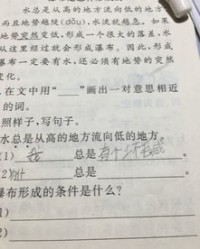 水总是从高的地方流向低的地方
而且地势越陡(dǒu),水流就越急。如果
地势突然变低,形成一个很大的落差,水
从这里经过就会形成瀑布。因此,形成
瀑布一定要有水,还必须有地势的突然
变化。
在文中用“___”画出一对意思相近
的词。
照样子,写句子。
水总是从高的地方流向低的地方。
(1) 我 总是
(2) 总是 。
瀑布形成的条件是什么?
1)
2)